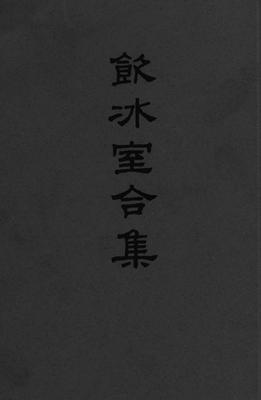 飲冰室合集